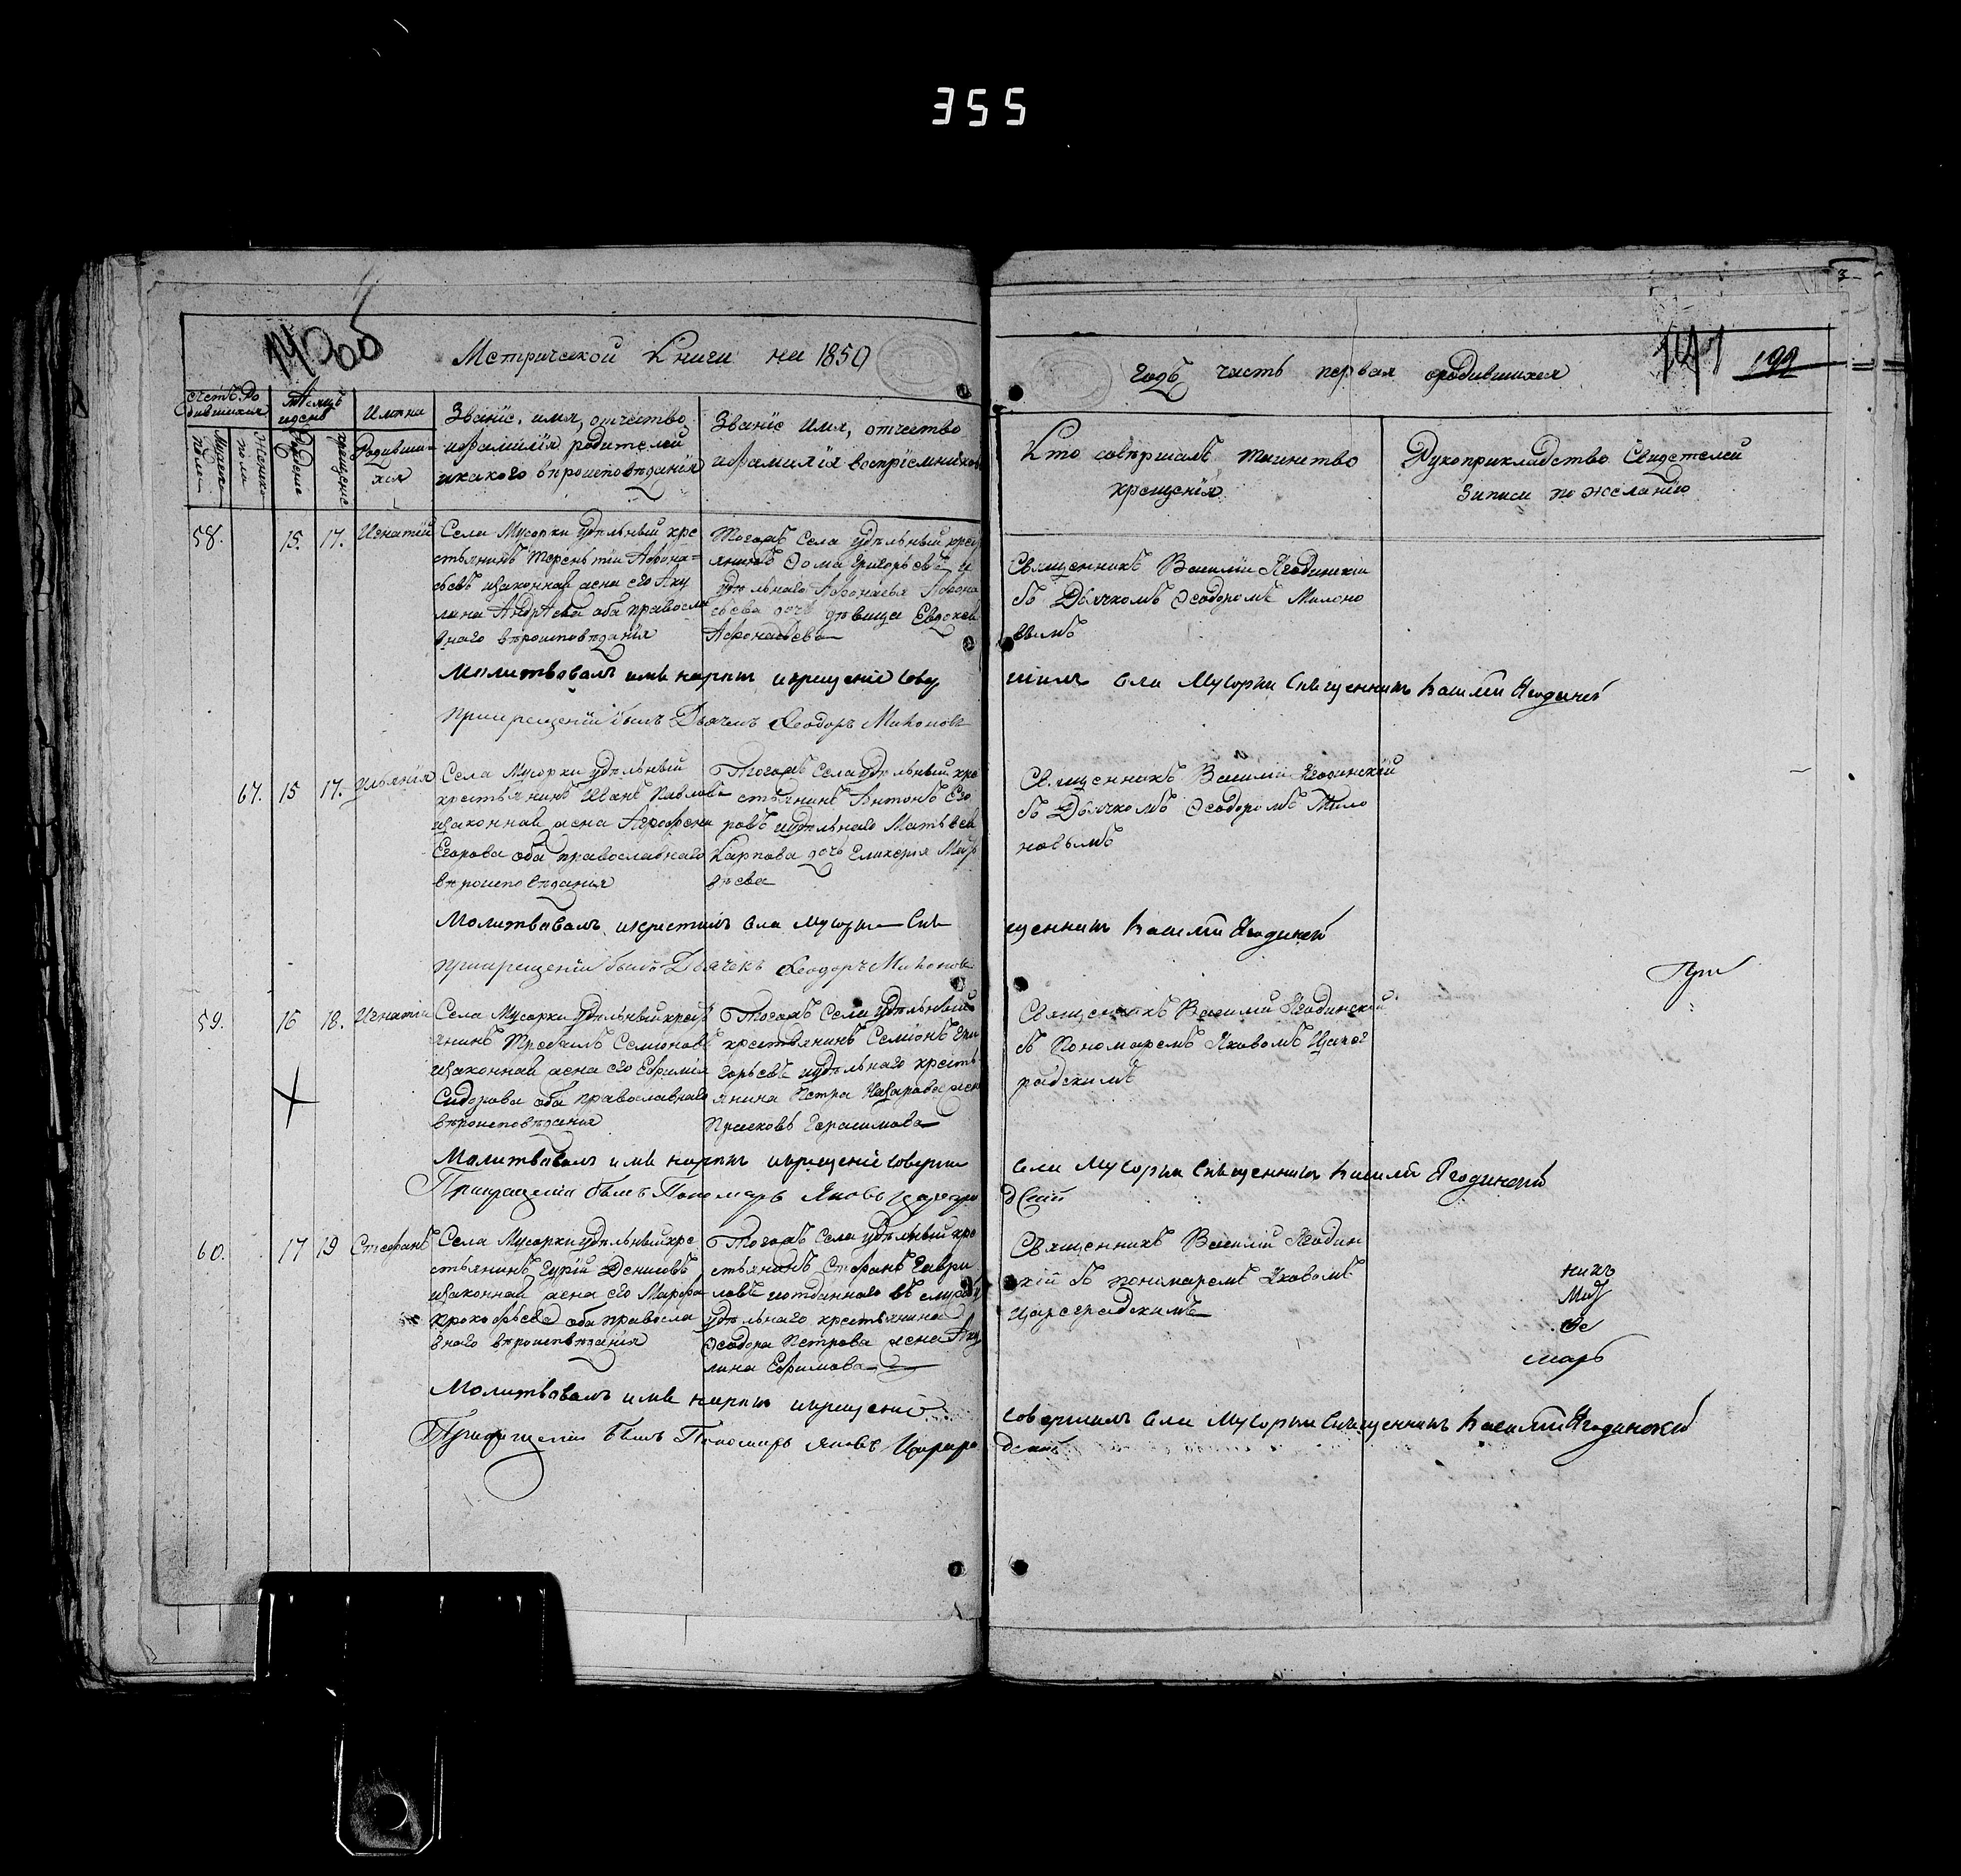 355
Метрической Книги на 1850
годъ часть первая о родившихся
141
199
3
Счетъ Ро
дившихся
Мѣсяцъ
и день
Имена
Родивших
ся
Мужеска
пола
Женска
пола
Рожденіе
Крещеніе
Званіе, имя, отчество
и фамилія родителей
и какого вѣроисповѣданія
Званіе Имя, отчество
и фамилія воспріемниковъ
Кто совершалъ таинство
крещенія
Рукоприкладство Свидетелей
записи по желанію
58. 15. 17. Игнатій
Села Мусорки удѣльный кре
стьянинъ Терентій Афона=
сьевъ и законная жена его Аку
лина Андрѣева оба правосла
внаго вѣроисповѣданія
Тогожъ Села удѣльный крест
янинъ Фома Григорьевъ и
удѣльнаго Афонасья Афона
сьева дочь дѣвица Евдокея
Афонасьева
Священникъ Василій Ягодинскій
съ Дьячкомъ Феодоромъ Милоно
вымъ
Молитвовалъ имя нарекъ и крещеніе совер
шилъ села Мусорки Священникъ Василій Ягодинскій
При крещеніи былъ Дьячекъ Феодоръ Милоновъ
67. 15 17. Ульянія
Села Мусорки удѣльный
крестьянинъ Иванъ Павловъ
и законная жена Агрофена
Егорова оба православнаго
вѣроисповѣданія
Тогожъ Села удѣльный кре
стьянинъ Антонъ Его
ровъ и удѣльнаго Матьвея
Карпова дочь Гликерья Мат
вѣева
Священникъ Василій Ягодинскій
съ Дьячкомъ Феодоромъ Мило
новымъ
Молитвовалъ и крестилъ села Мусорки Свя
щенникъ Василій Ягодинскій
При крещеніи былъ Дьячекъ Феодоръ Милоновъ
При
59. 16 18. Игнатій
Села Мусорки удѣльный крест
янинъ Трофимъ Семіоновъ
и законная жена его Евфимія
Сидорова оба православнаго
вѣроисповѣданія
Тогожъ Села удѣльный
крестьянинъ Семіонъ Гри
горьевъ и удѣльнаго кресть
янина Петра Назарова жена
Прасковья Герасимова
Священникъ Василій Ягодинской
съ Пономаремъ Яковомъ Царег
радскимъ
Молитвовалъ имя нарекъ и крещеніе совершилъ
села Мусорки Священникъ Василій Ягодинскій
При крещеніи былъ Пономарь Яковъ Царегра
дскій
60. 17 19 Стефанъ
Села Мусорки удѣльный кре
стьянинъ Гурій Денисовъ
и законная жена его Марфа
Прокофьева оба правосла
внаго вѣроисповѣданія
Тогожъ Села удѣльный кре
стьянинъ Стефанъ Гаври
ловъ и отданнаго въ службу
удѣльнаго крестьянина
Феодора Петрова жена Аку
лина Ефимова
Священникъ Василій Ягодин
скій съ пономаремъ Яковомъ
Цареградскимъ
марь
Молитвовалъ имя нарекъ и крещеніе
совершилъ села Мусорки Священникъ Василій Ягодинскій
При крещеніи былъ Пономарь Яковъ Царегра
дскій